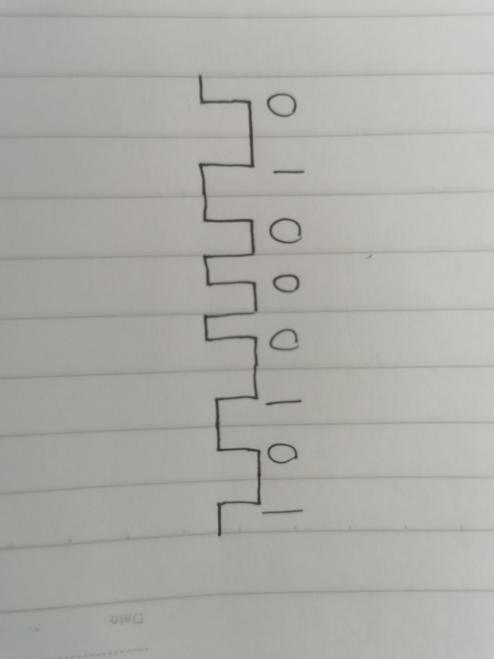 0 1 0 0 0 1 0 1
Date